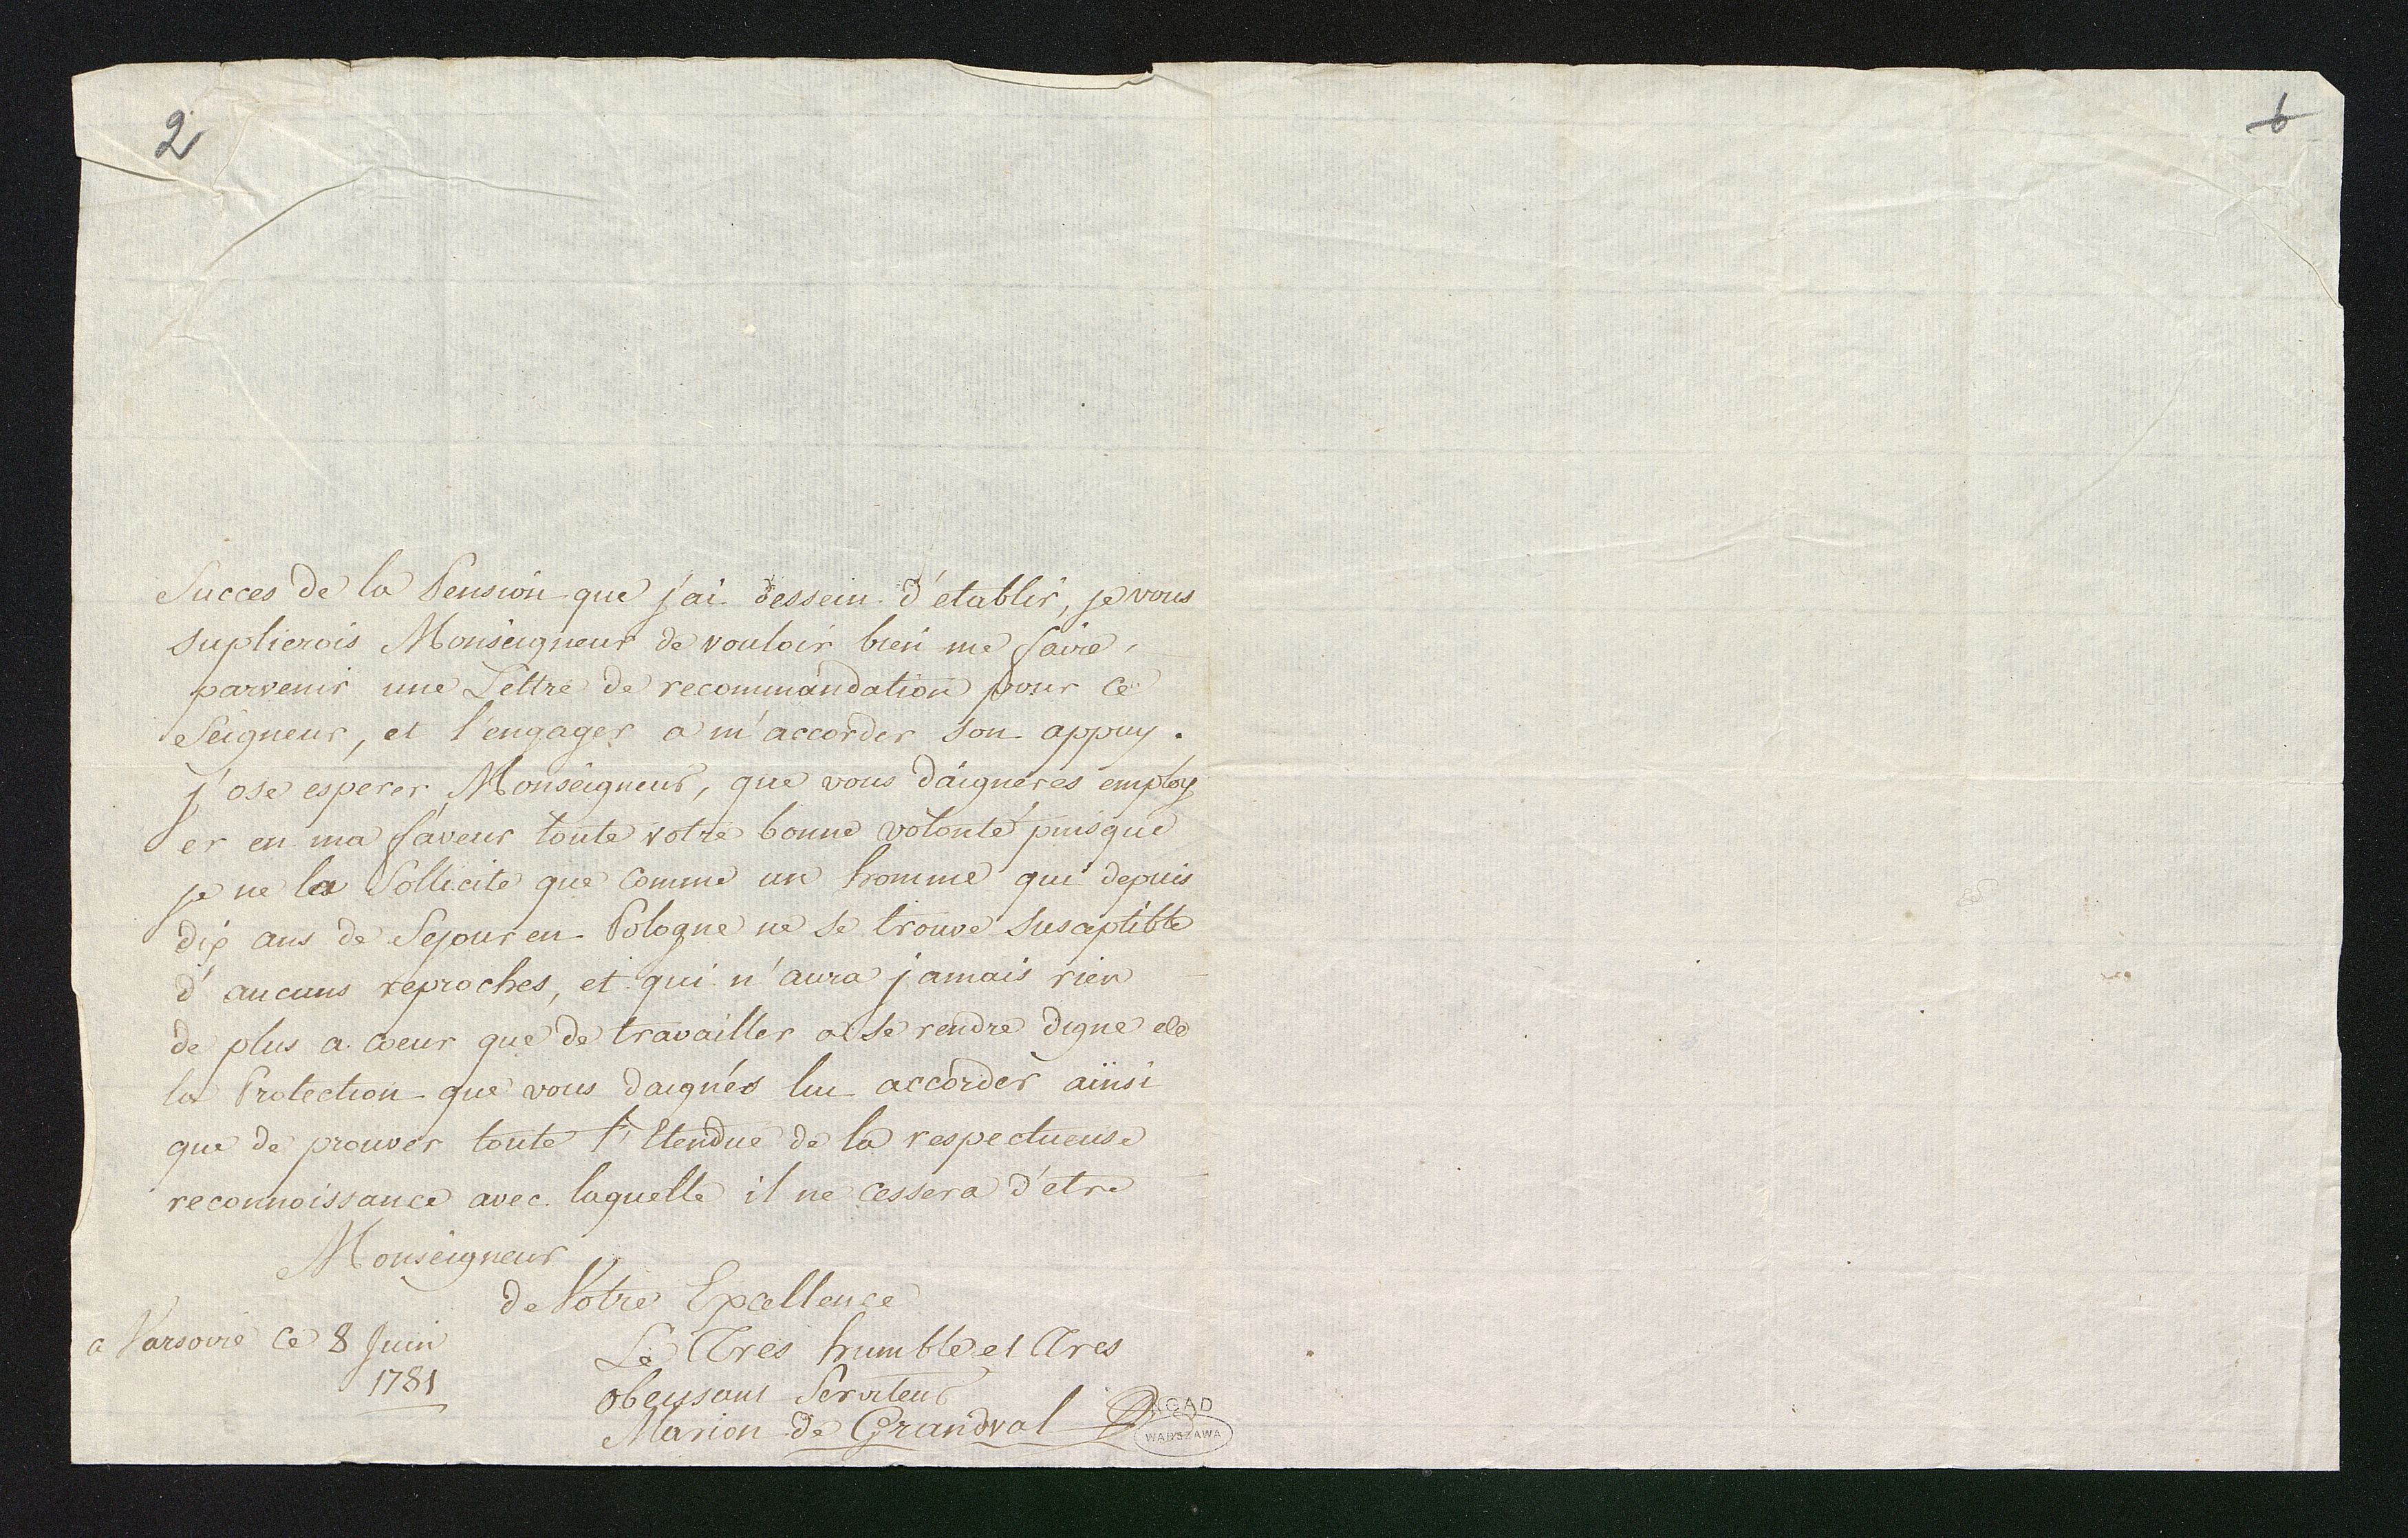 2
6
Succes de la Pension que j'ai dessein d'etablir, je vous
suplierois Monseigneur de vouloir bien me faire
parvenir une Lettre de recommandation pour ce
Seigneur, et l'engager a m'accorder son appuy.
j'ose esperer Monseigneur, que vous daigneres employ
er en ma faveur toute votre bonne volonté puisque
je ne la Sollicite que comme un homme qui depuis
dix ans de Sejour en Pologne ne se trouve susceptible
d'aucuns reproches, et qui n'aura jamais rien
de plus a coeur que de travailler a se rendre digne de
la Protection que vous daignés lui accorder ainsi
que de prouver toute l'Etendue de la respectueuse
reconnoissance avec laquelle il ne cessera d'etre
Monseigneur
de Votre Excellence
a Varsovie ce 8 Juin
1781
Le Tres humble et Tres
obeissant Serviteur
Marion de Grandval
AGAD
WARSZAWA